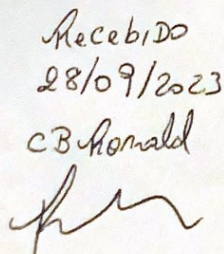 RecebiDO
28/09/2023
CB Ronald